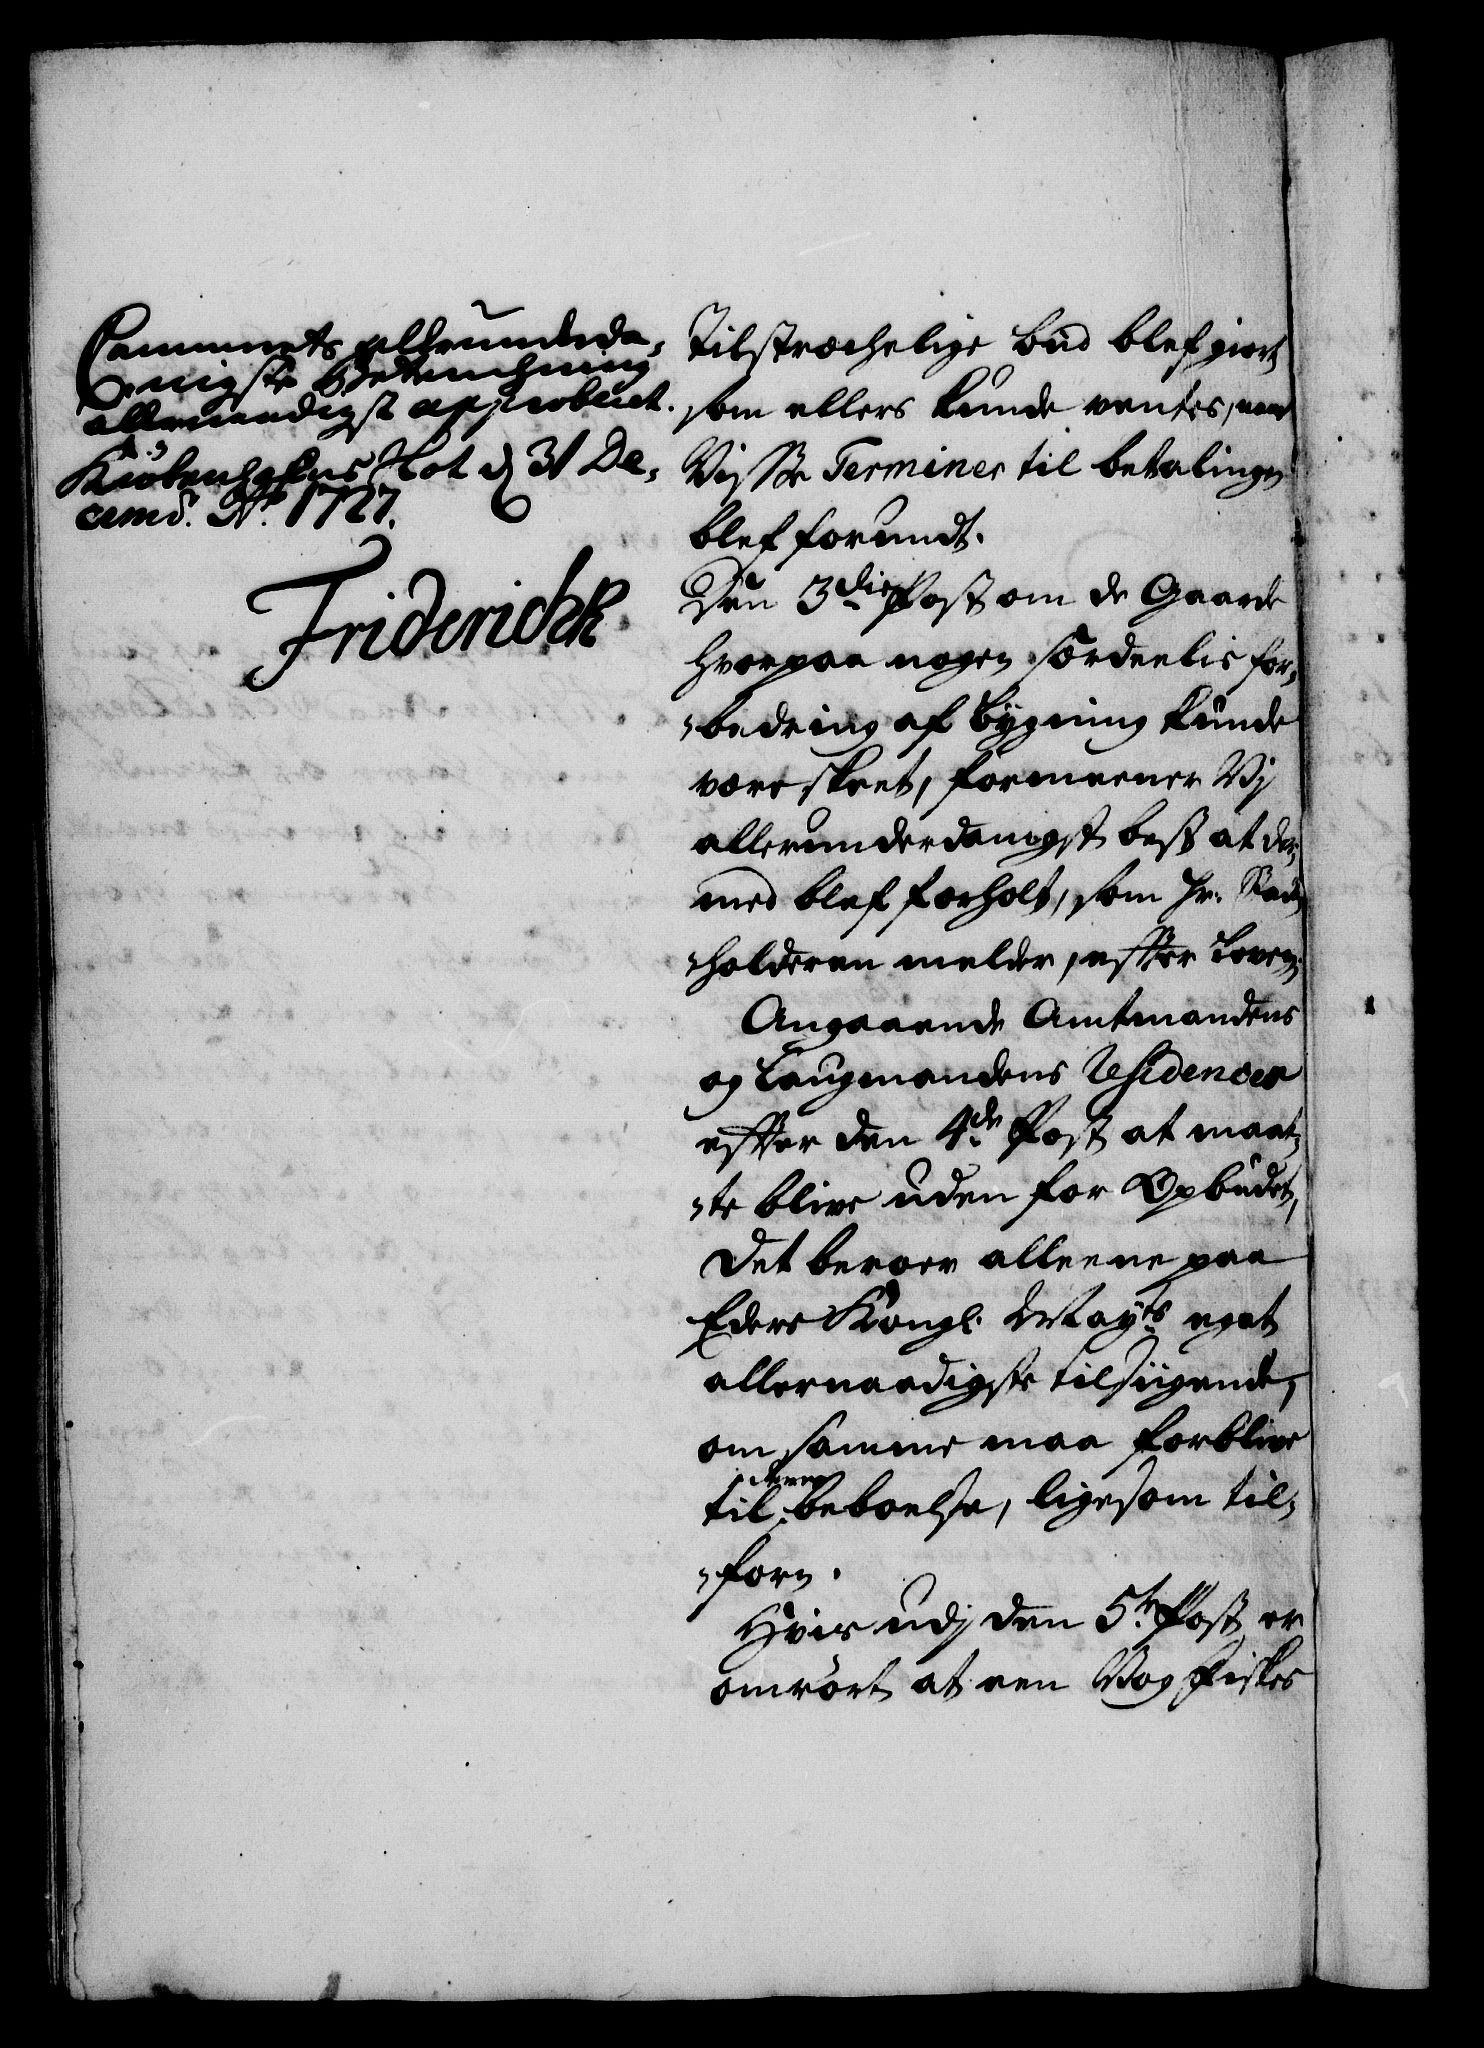 Cammerets allerunderda-
nigste Betænchning
allernaadigst approberet.
Kiøbenhafns Slot d 31 De-
cemb. Ao. 1727.
Friderich R
tilstræchelige bud blef giort
som ellers kunde ventes, naar
Visse Terminer til betalingen
blef forundt.
Den 3die Post om de Gaarde
hvorpaa nogen særdeelis for-
-bedring af bygning kunde
være skeet, formeener Vj
allerunderdanigst best at der-
med blef forholt, som Hr. Stadt-
-holderen melder, efter Loven.
Angaaende Amtmandens
og Laugmandens Residencer
efter den 4de Post at maat-
-te blive uden for Opbudet,
det beroer alleene paa
Eders Kongl. Mayts eget
allernaadigste tilsigende,
om samme maa forblive
til deres beboelse, ligesom til-
-forn.
Hvis udj den 5te Post er
omrørt at een Vog Fiskes